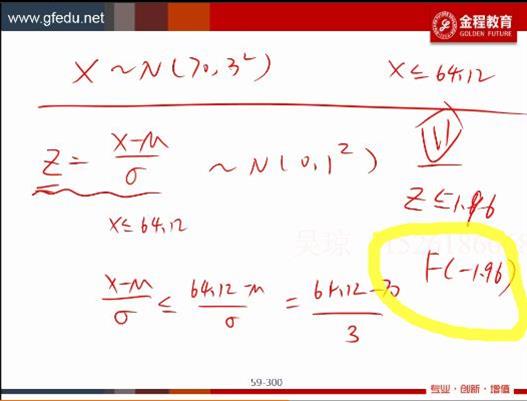 www.gfedu.net
金程教育
GOLDEN FUTURE
X ~ N(70, 3²)
X ≤ 64.12
Z = X-μ / σ ~ N(0, 1²)
Z ≤ 1.96
X ≤ 64.12
F(-1.96)
X-μ / σ ≤ 64.12-μ / σ = 64.12-70 / 3
59-300
专业·创新·增值